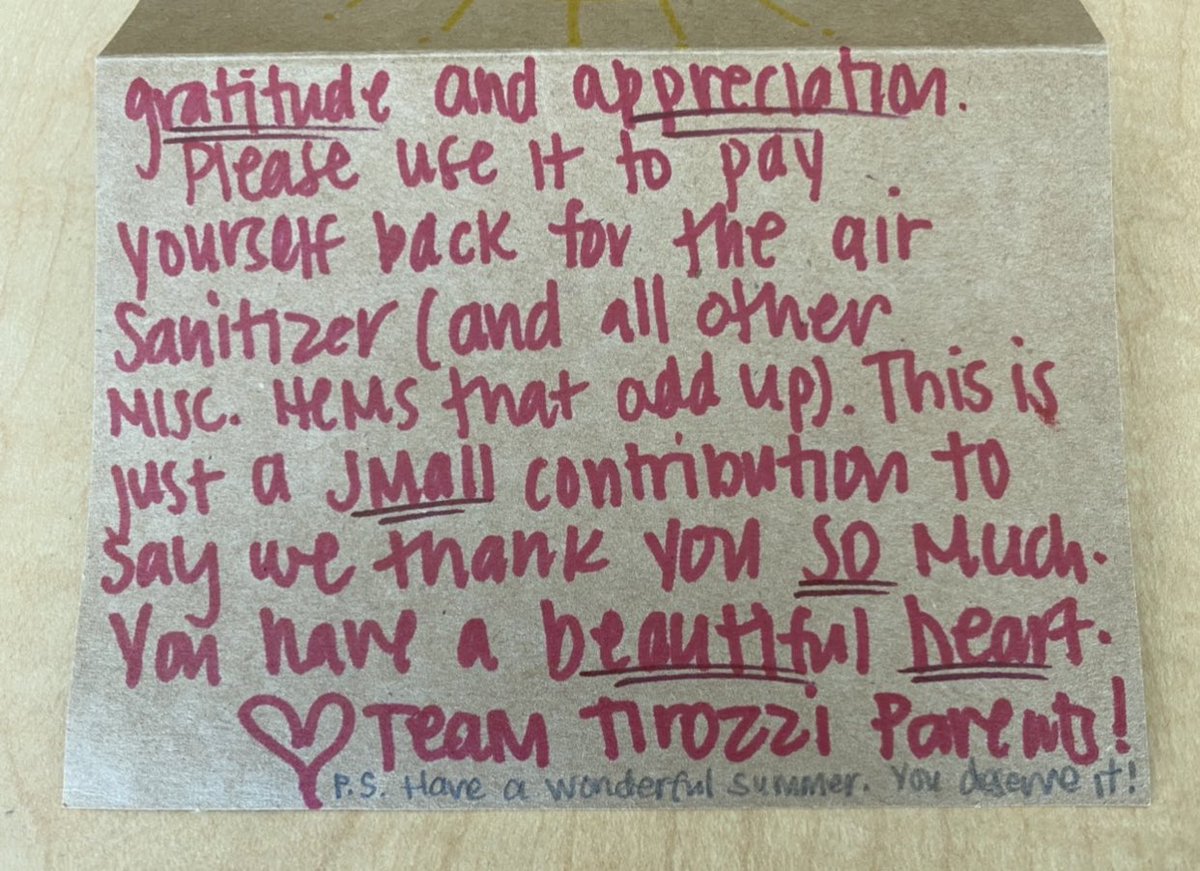 gratitude and appreciation.
Please use it to pay
yourself back for the air
Sanitizer (and all other
Misc. items that add up). This is
just a small contribution to
say we thank you so much.
You have a beautiful heart.
Team Tirozzi Parents!
P.S. Have a wonderful summer. You deserve it!